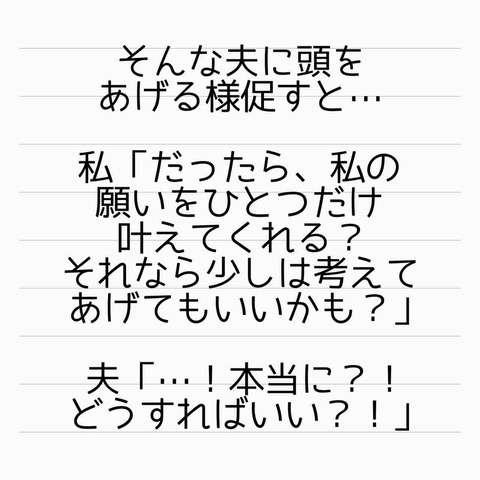 そんな夫に頭を
あげる様促すと…
私「だったら、私の
願いをひとつだけ
叶えてくれる？
それなら少しは考えて
あげてもいいかも？」
夫「…！本当に？！
どうすればいい？！」